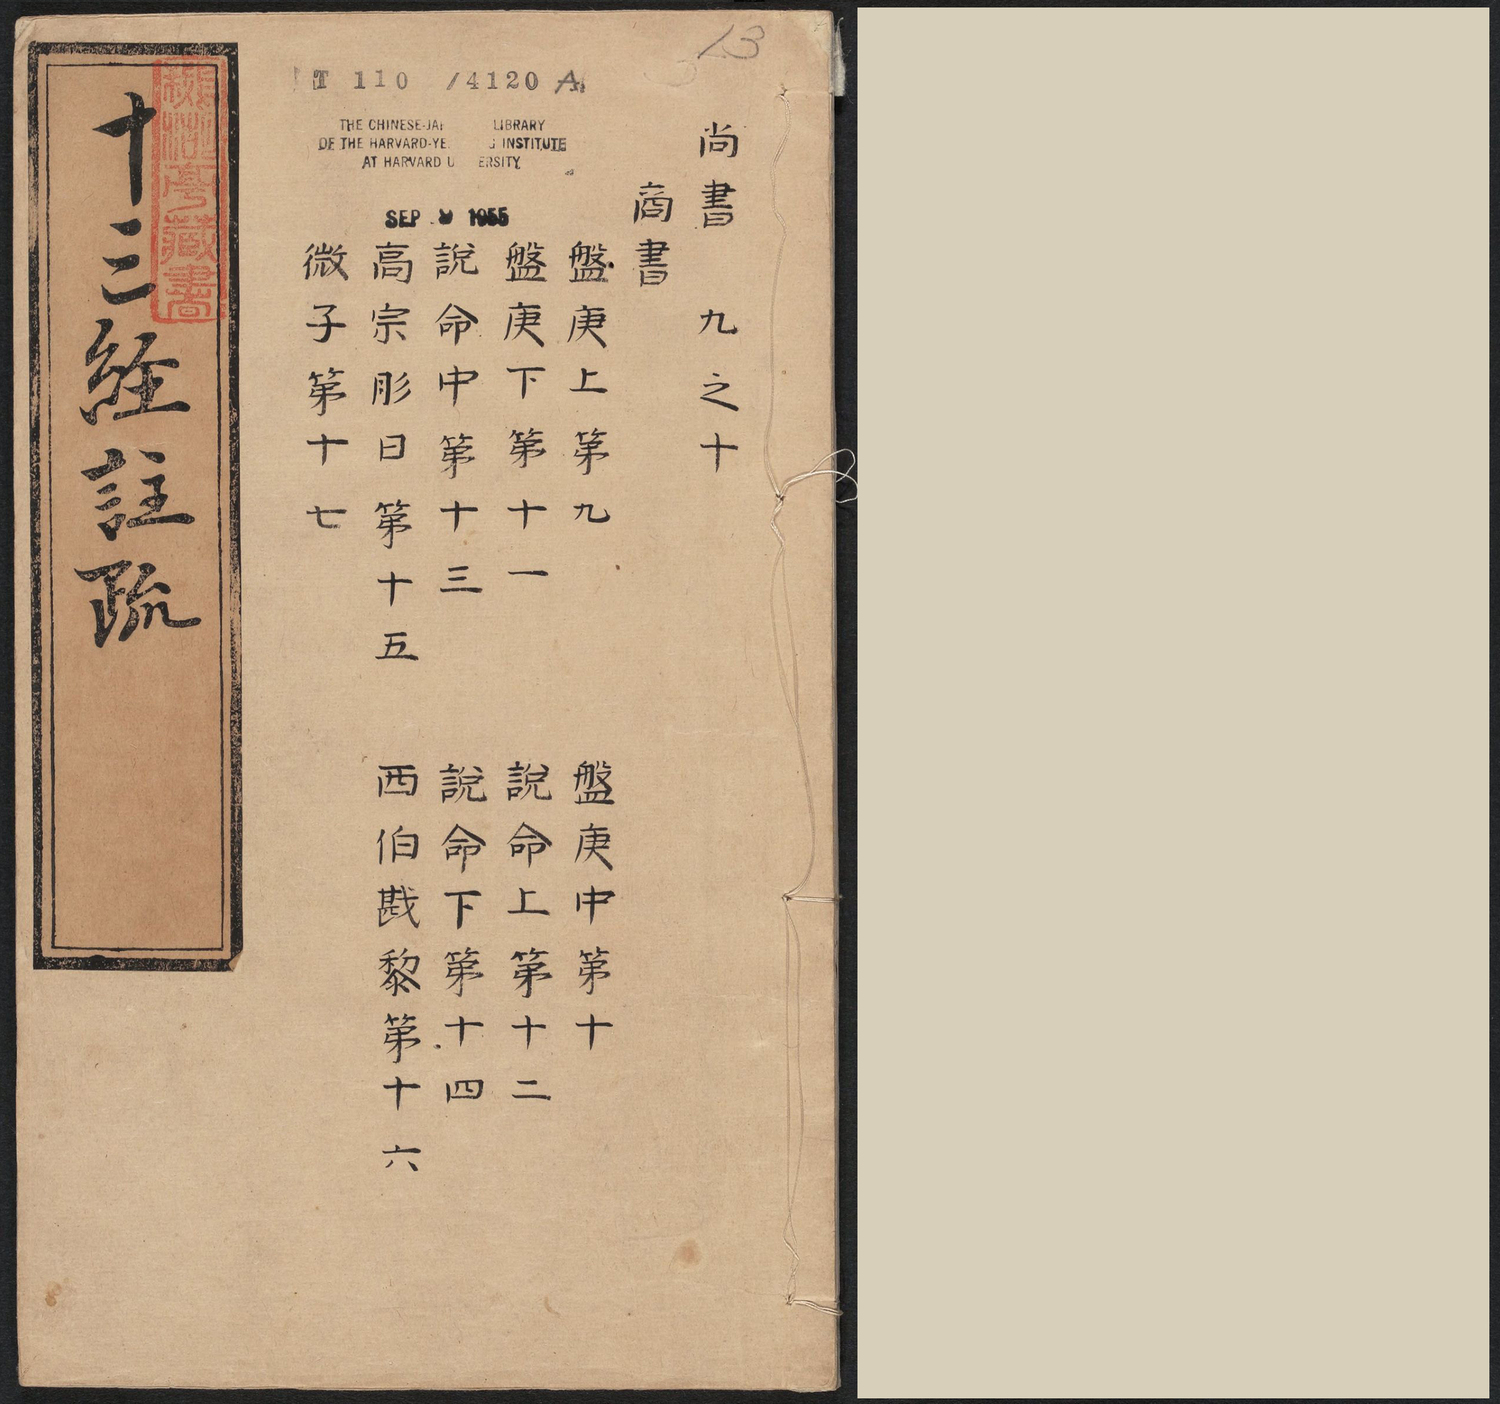 13
尚書　九之十
商書
盤庚上第九　盤庚中第十
盤庚下第十一　說命上第十二
說命中第十三　說命下第十四
高宗肜日第十五　西伯戡黎第十六
微子第十七
T 110 /4120 A
THE CHINESE-JA LIBRARY
OF THE HARVARD-YE INSTITUTE
AT HARVARD U ERSITY
SEP 9 1955
十三經註疏
亭藏書